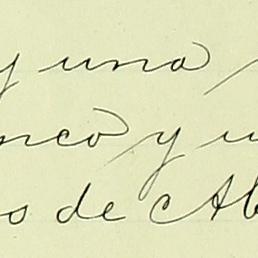 y una
nco y u
os de Ab